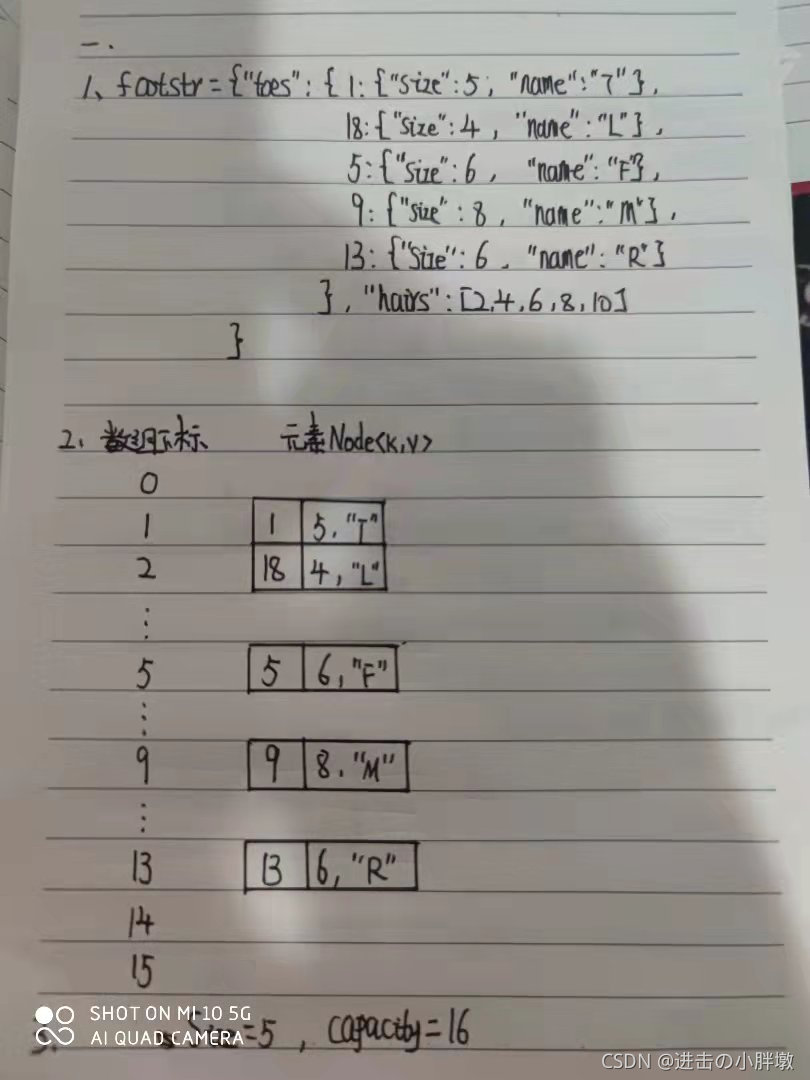 一.
1、footstr = {"toes": { 1: {"size": 5, "name": "T"},
18: {"size": 4, "name": "L"},
5: {"size": 6, "name": "F"},
9: {"size": 8, "name": "M"},
13: {"size": 6, "name": "R"}
}, "hairs": [2,4,6,8,10]
}
2、数组下标 元素Node<K,V>
0
1 1 5,"T"
2 18 4,"L"
⋮
5 5 6,"F"
⋮
9 9 8,"M"
⋮
13 13 6,"R"
14
15
3. Size=5, capacity=16
SHOT ON MI 10 5G
AI QUAD CAMERA
CSDN @进击の小胖墩